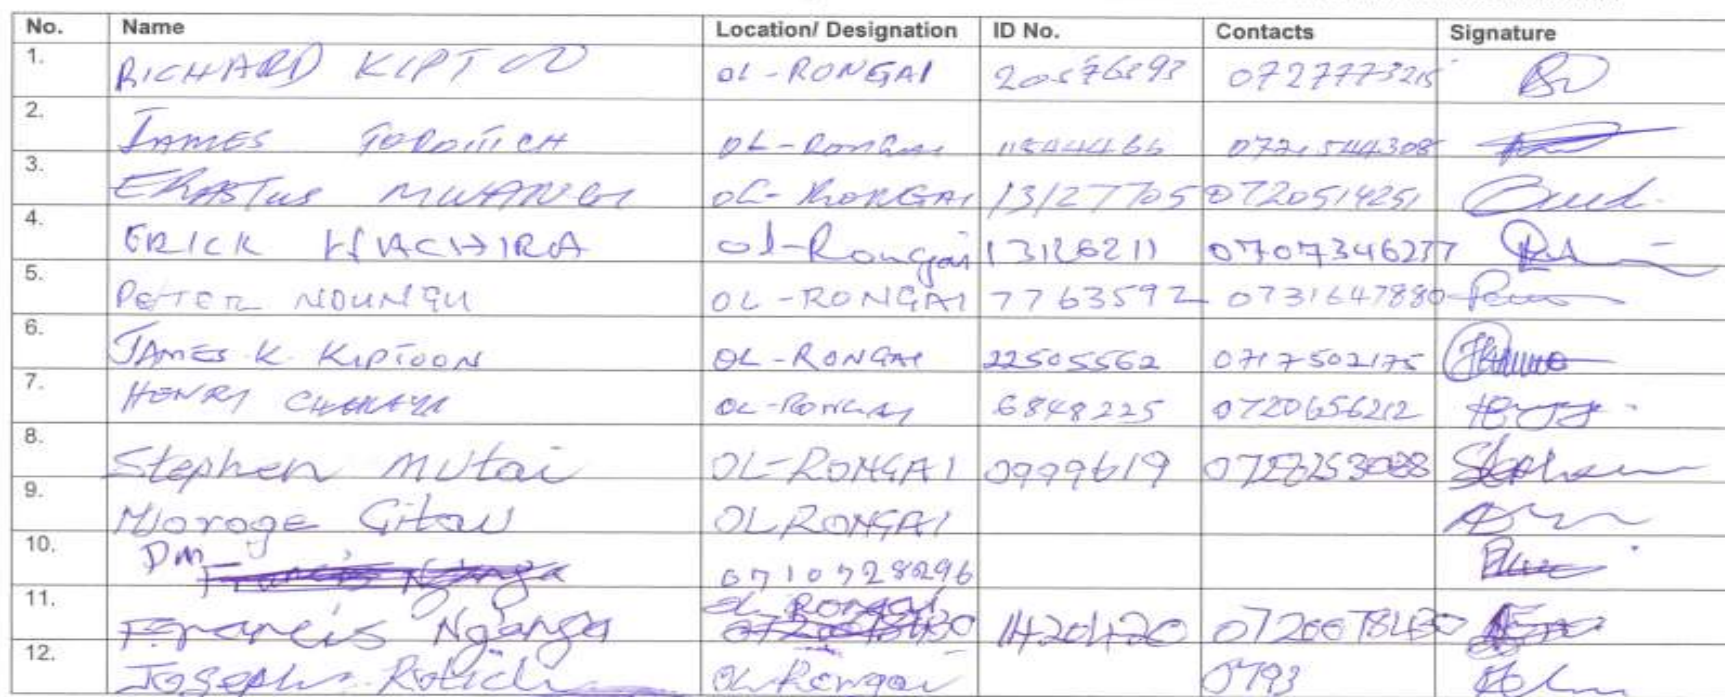 No. Name Location/ Designation ID No. Contacts Signature
1. RICHARD KIPTOO OL-RONGAI 20576393 0727773215
2. JAMES TOROITICH OL-Rongai 11544466 0721544308
3. ERASTUS MWANGI OL-RONGAI 13127705 0720514251
4. ERICK WACHIRA Ol-Rongai 13126211 0707346237
5. PETER NDUNGU OL-RONGAI 7763592 0731647880
6. JAMES K. KIPTOON OL-RONGAI 22505562 0717502175
7. HENRY OL-RONGAI 6848225 0720656212
8. Stephen Mutai OL-RONGAI 0999619
9. Njoroge Gitau OL RONGAI
10. DM Francis Nganga 0710728296
11. Francis Nganga Ol Rongai 11420420 0720078430
12. Joseph Rotich OL Rongai 0793